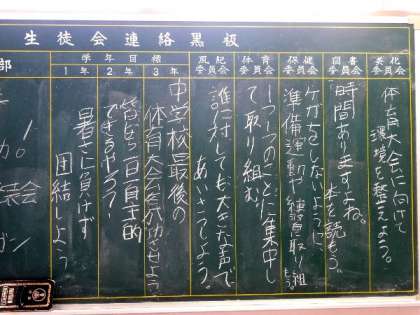 生徒会連絡黒板
美化委員会
体育大会に向けて
環境を整えよう。
図書委員会
時間ありますよね。
本を読もう。
保健委員会
ケガをしないように、
準備運動や練習に取り組もう
体育委員会
一つ一つのことに集中し
て取り組む。
風紀委員会
誰に対しても大きな声で
あいさつしよう。
学年目標
3年
中学校最後の
体育大会を成功させよう
2年
皆なら自主的
できるやろ?
1年
暑さに負けず
団結しよう
部